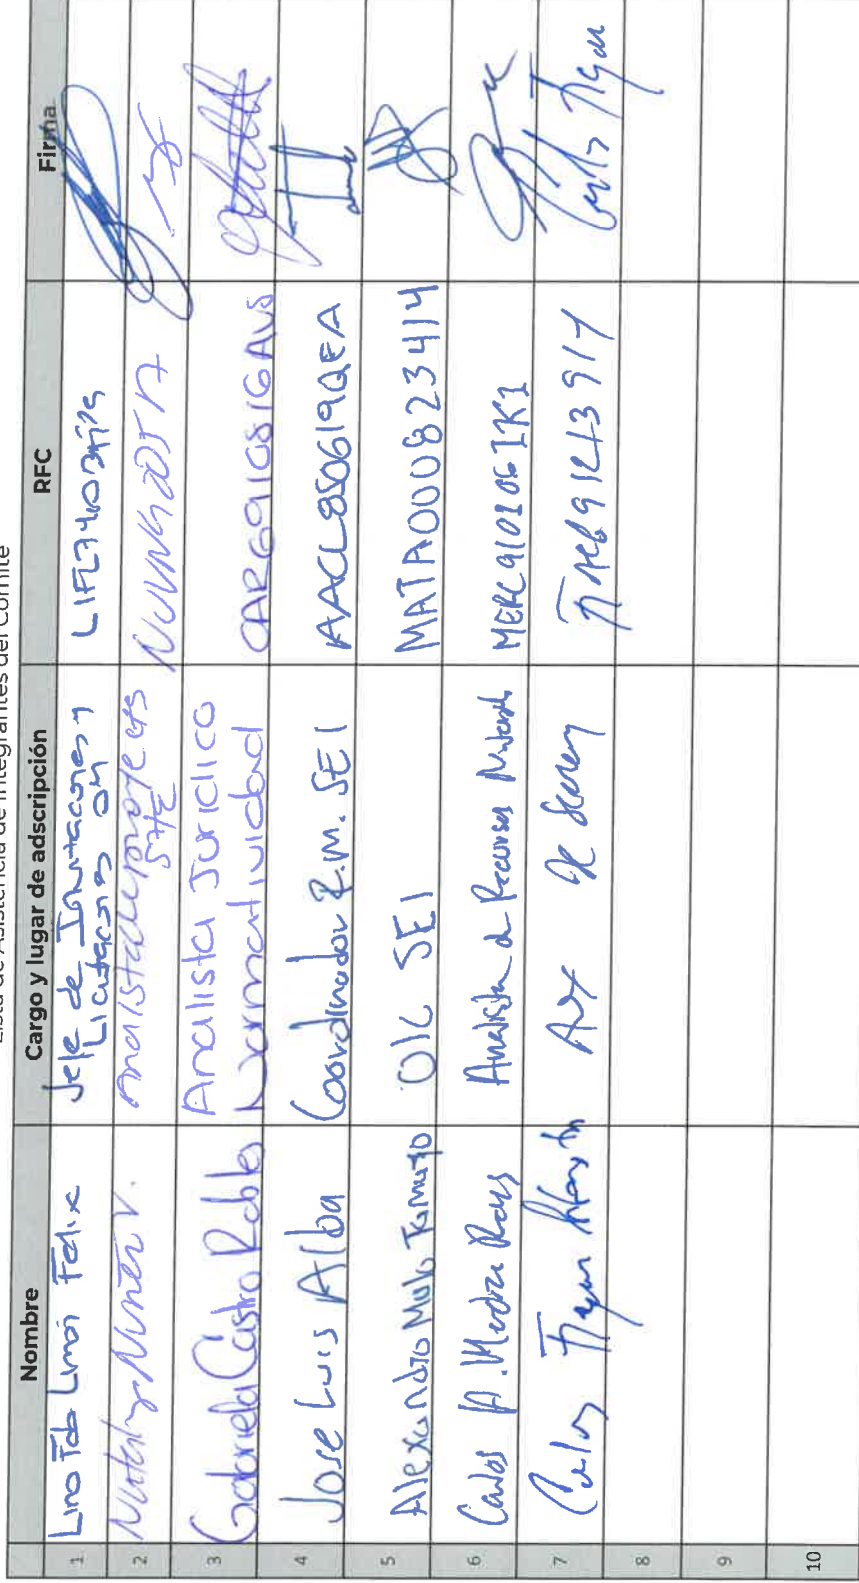 Lista de Asistencia de Integrantes del Comité
Nombre Cargo y lugar de adscripción RFC Firma
1 Lino Fdo Limón Félix Jefe de Invitaciones y
Licitaciones OM
2 Nataly Nuñez V. Analista de proyectos
3 Gabriela Castro Robles Analista Jurídico
Normatividad CARG910816AV8
4 Jose Luis Alba Coordinador R.M. SEI AACL850619QEA
5 Alexandro Mata Tamayo OIC SEI MATA0008234I4
6 Carlos A. Medina Reyes Analista de Recursos Materiales MERC910206IK1
7 Carlos Aux de
8
9
10